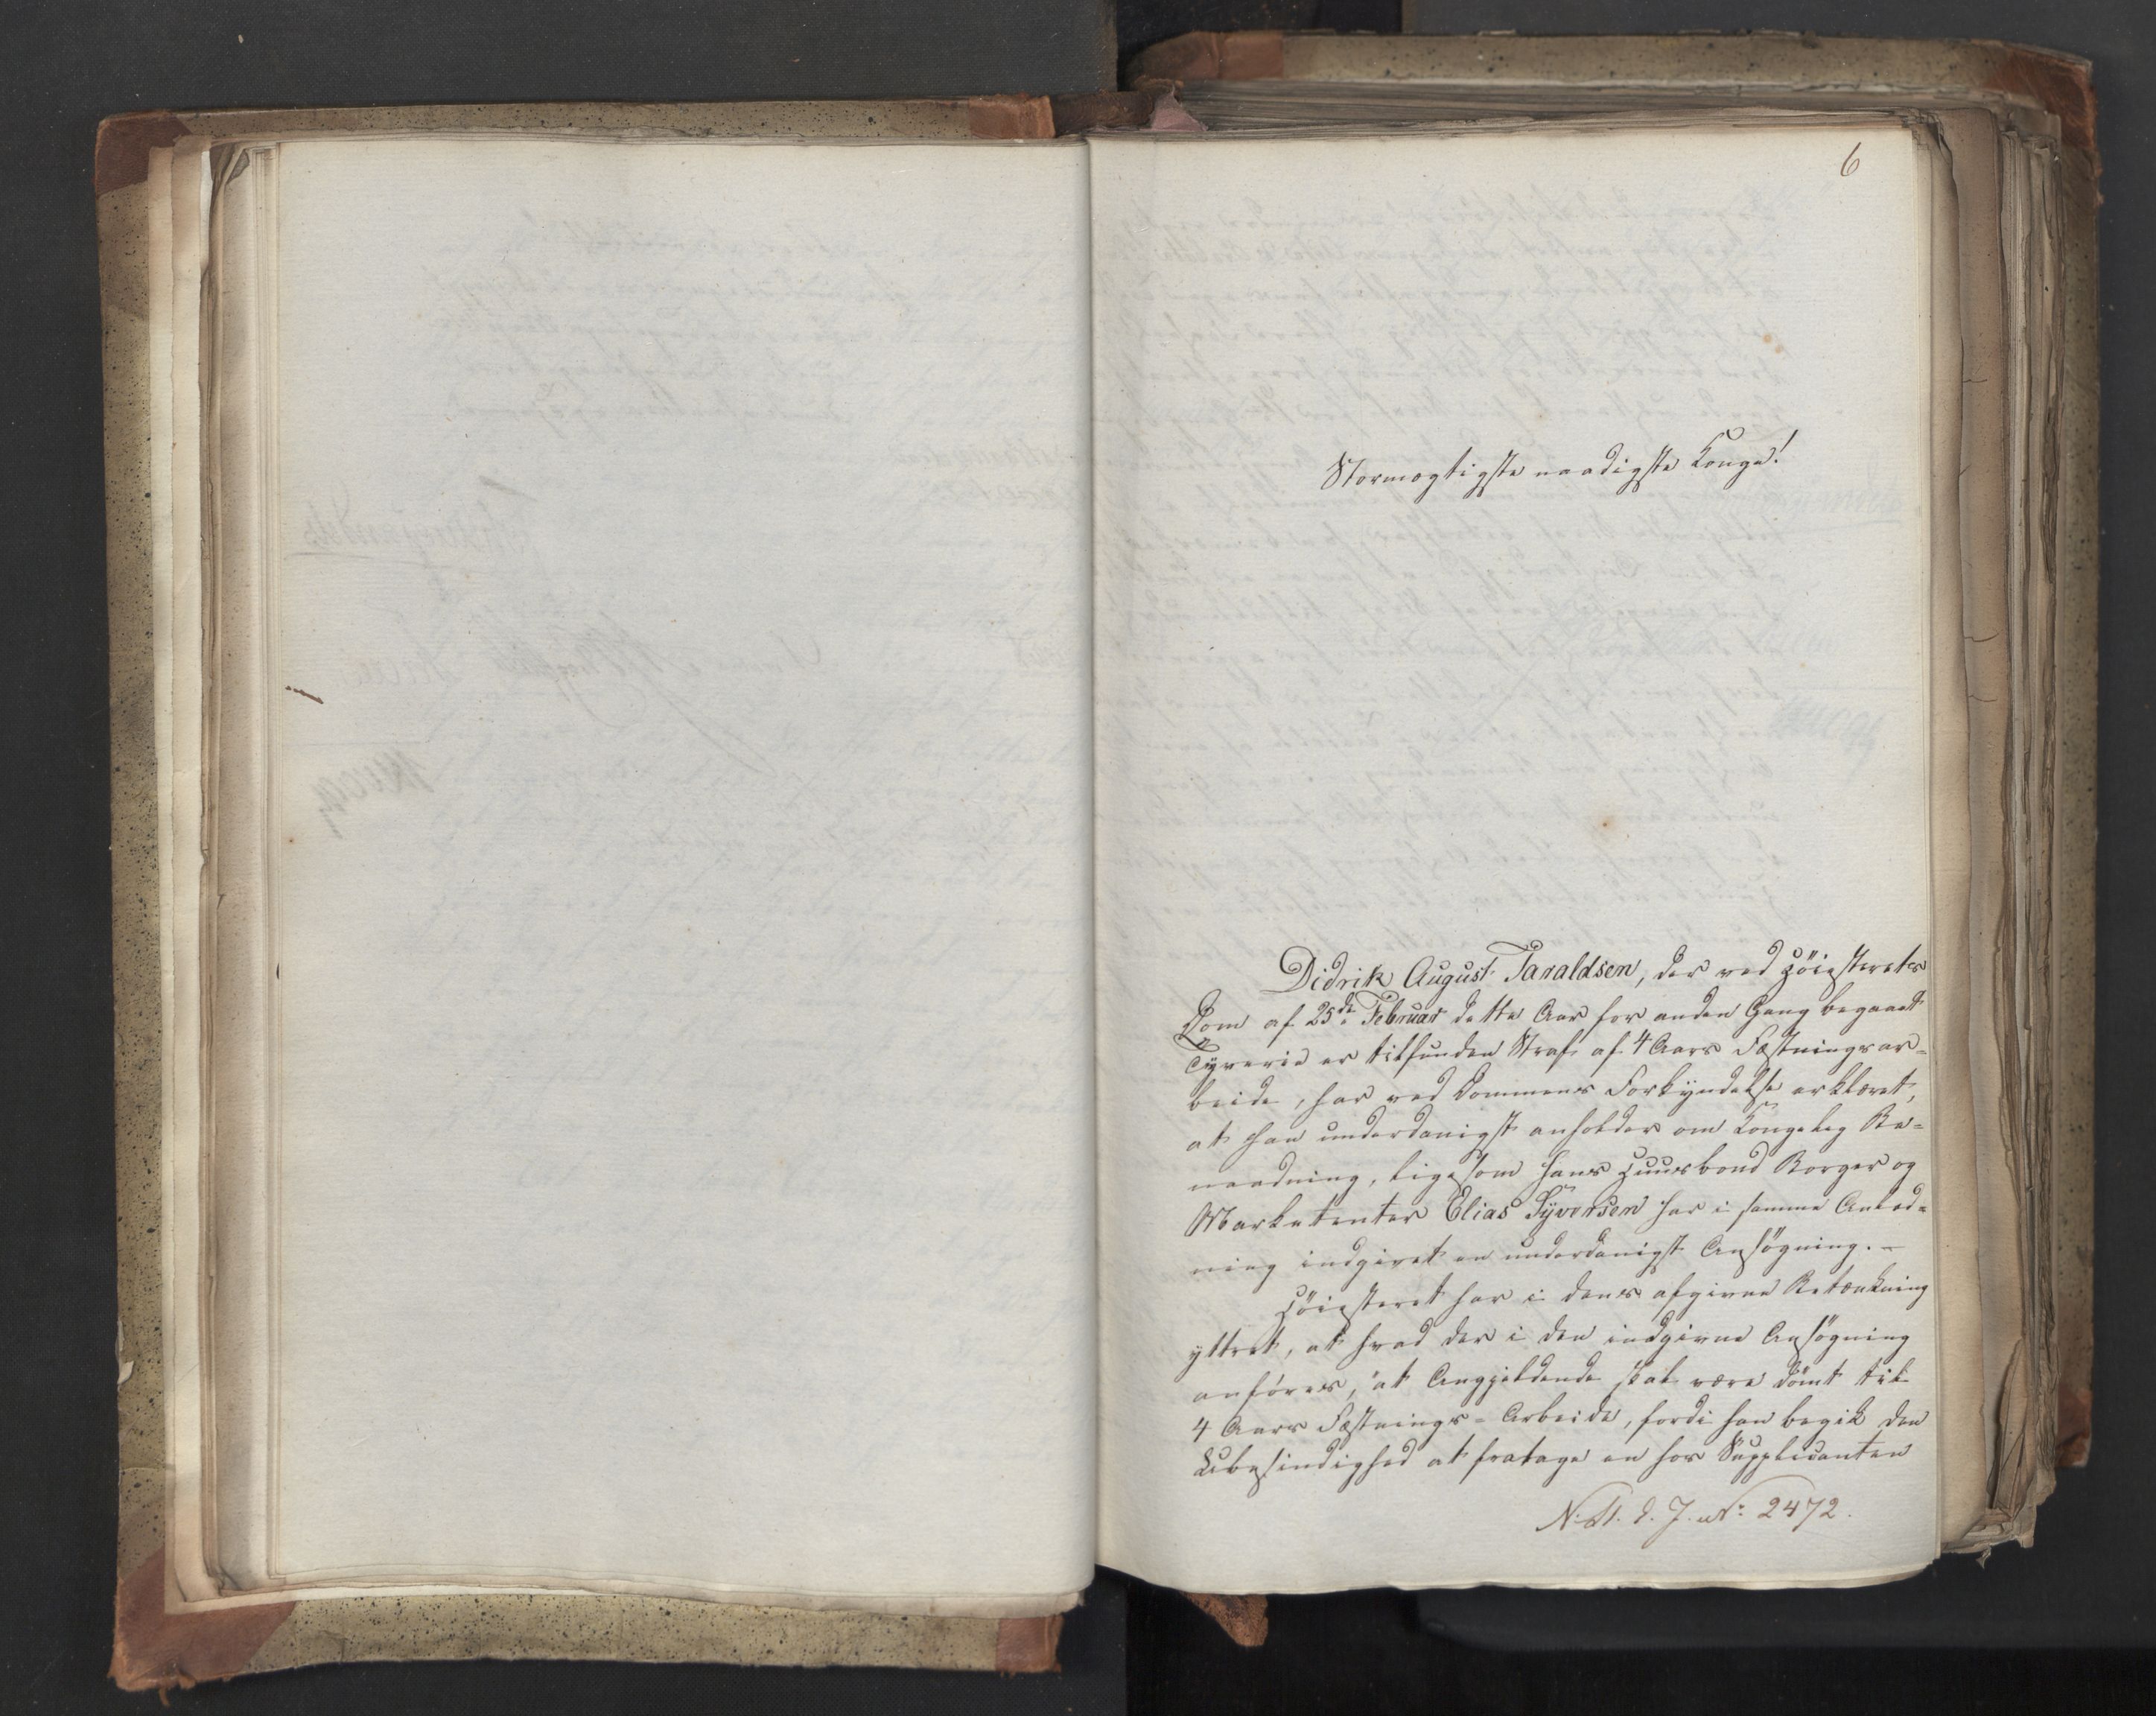 6
Stormægtigste naadigste Konge!
Didrik August Taraldsen, der ved Höiesterets
Dom af 25de Februar dette Aar for anden Gang begaaet
Tyverie er tilfunden Straf af 4 Aars Fæstningsar-
beide, har ved Dommens Forkyndelse erklæret,
at han underdanigst anholder om Kongelig Be-
naadning, ligesom hans Huusbond Borger og
Marketenter Elias Syversen har i samme Anled-
ning indgivet en underdanigst Ansøgning.-
Höiesteret har i dens afgivne Betænkning
yttret, at hvad der i den indgivne Ansøgning
anføres, at Angjeldende skal være dömt til
4 Aars Fæstnings-Arbeide, fordi han begik den
Ubesindighed at fratage en hos Supplicanten
N. St. d. J. No 2472.